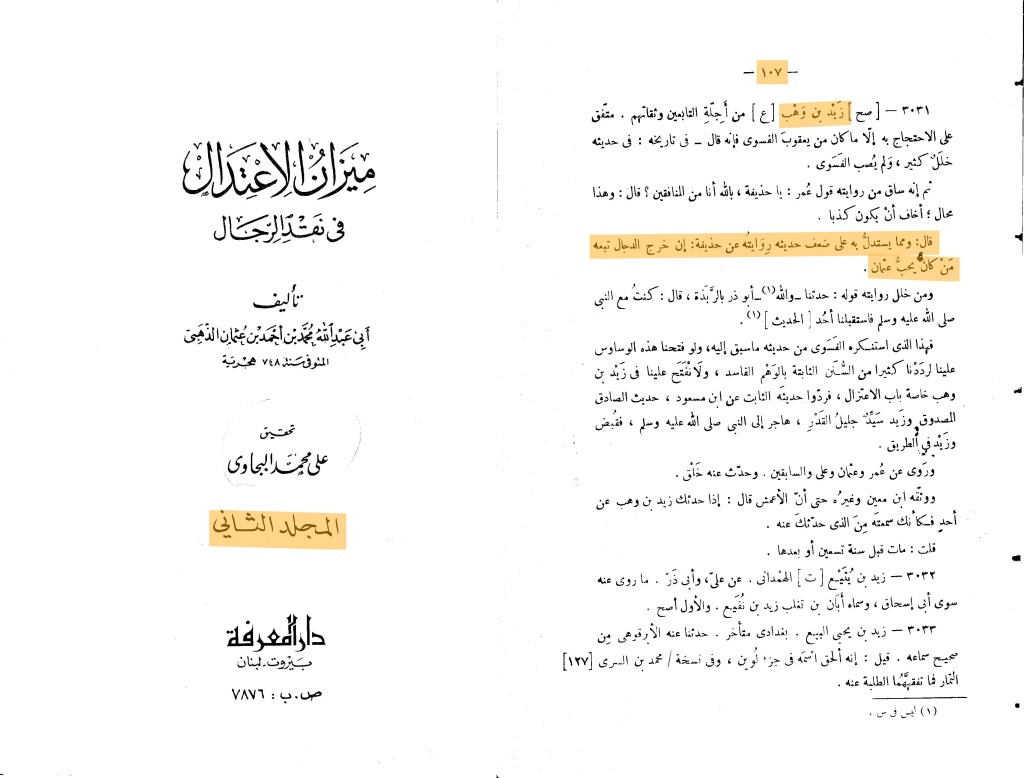 ميزان الاعتدال
فى نقد الرجال
تأليف
أبى عبد الله محمد بن أحمد بن عثمان الذهبى
المتوفى سنة ٧٤٨ هجرية
تحقيق
على محمد البجاوى
المجلد الثاني
دار المعرفة
بيروت ـ لبنان
ص.ب : ٧٨٧٦
— ١٠٧ —
٣٠٣١ — [ صح ] زَيْد بن وَهْب [ ع ] من أَجِلَّةِ التابعين وثقاتهم . متفق
على الاحتجاج به إلّا ما كان من يعقوبَ الفسوى فإنه قال ــ فى تاريخه : فى حديثه
خلَلٌ كثير ، ولم يُصب الفَسَوى .
ثم إنه ساق من روايته قول عُمر : يا حذيفة ، بالله أنا من المنافقين ؟ قال : وهذا
محال ؛ أخاف أنْ يكون كذبا .
قال: ومما يستدلُّ به على ضعف حديثه رِوَايتُه عن حذيفة: إن خرج الدجال تبعه
مَنْ كانَ يحبُّ عثمان .
ومن خلل روايته قوله : حدثنا ــ والله(١) ــ أبو ذر بالرَّبَذة ، قال : كنتُ مع النبي
صلى الله عليه وسلم فاستقبلنا أُحُد [ الحديث ](١) .
فهذا الذى استنكره الفَسَوى من حديثه ماسبق إليه، ولو فتحنا هذه الوساوس
علينا لرَدَدْنا كثيرا من السُّنن الثابتة بالوَهْم الفاسد ، ولا نَفْتَح علينا فى زَيْد بن
وهب خاصة باب الاعتزال ، فردّوا حديثَه الثابت عن ابن مسعود ، حديث الصادق
المصدوق وزَيد سَيِّدٌ جليلُ القَدْرِ ، هاجر إلى النبي صلى الله عليه وسلم ، فقُبض
وزَيْد في الطريق .
ورَوى عن عُمر وعثمان وعلى والسابقين . وحدّث عنه خَلْق .
ووثّقه ابن معين وغيرُه حتى أنّ الأعمش قال : إذا حدثك زيد بن وهب عن
أحدٍ فكأنك سمعتَه مِنَ الذى حدّثكَ عنه .
قلت : مات قبل سنة تسعين أو بعدها .
٣٠٣٢ — زيد بن يُثَيْع [ ت ] الهمْدانى . عن علىّ، وأبى ذَرّ . ما روى عنه
سوى أبى إسحاق ، وسماه أبَان بن تغلب زيد بن نُفَيع . والأول أصح .
٣٠٣٣ — زيد بن يحيى البيع . بغدادى متأخر . حدثنا عنه الأبرقوهى مِن
صحيح سماعه . قيل : إنه ألحق اسْمَه فى جزء لُوين ، وفى نسخة / محمد بن السرى [١٢٧]
التمار فما تفقهُما الطلبة عنه .
(١) ليس فى س .